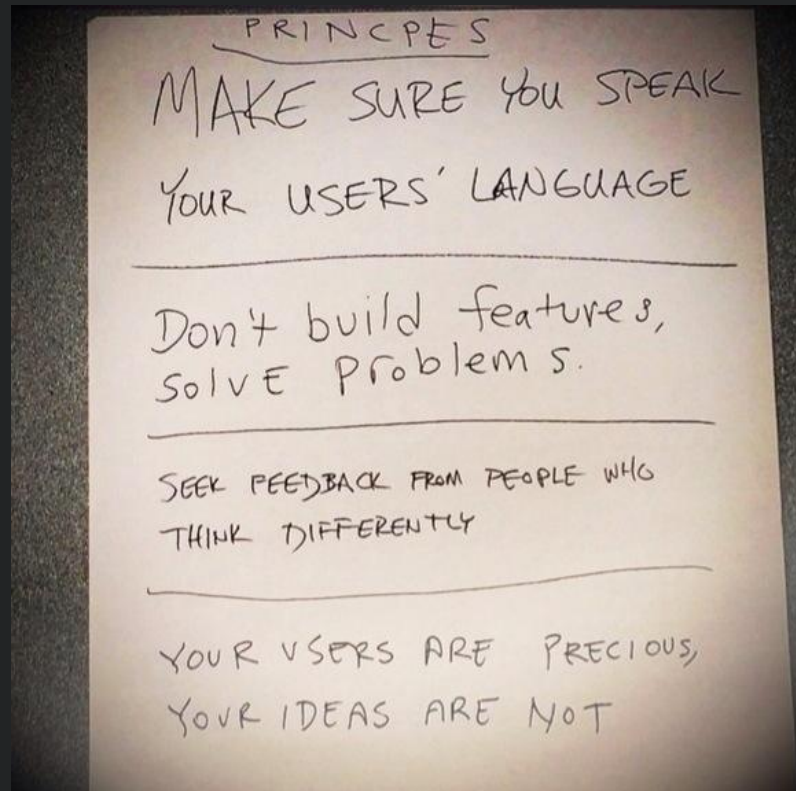 PRINCPES
MAKE SURE YOU SPEAK
YOUR USERS' LANGUAGE
Don't build features,
SolVE Problems.
SEEK FEEDBACK FROM PEOPLE WHO
THINK DIFFERENTLY
YOUR USERS ARE PRECIOUS,
YOUR IDEAS ARE NOT